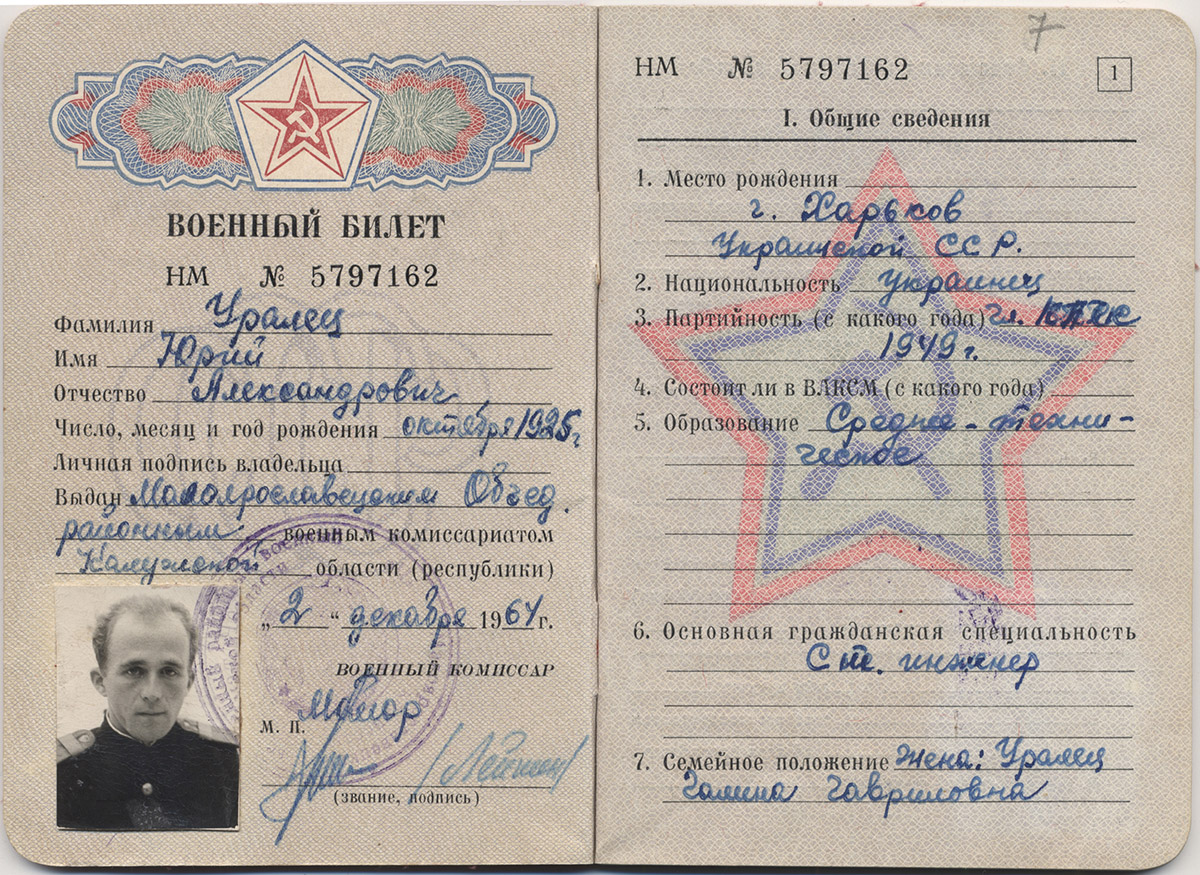 ВОЕННЫЙ БИЛЕТ
НМ № 5797162
Фамилия Уралец
Имя Юрий
Отчество Александрович
Число, месяц и год рождения октября 1925 г
Личная подпись владельца
Выдан Малоярославецким Объед.
районным военным комиссариатом
Калужской области (республики)
„ 2 “ декабря 1964 г.
ВОЕННЫЙ КОМИССАР
Майор
М. П.
(звание, подпись)
7
НМ № 5797162
1
I. Общие сведения
1. Место рождения
г. Харьков
Украинской ССР.
2. Национальность украинец
3. Партийность (с какого года) чл. КПСС
1949 г.
4. Состоит ли в ВЛКСМ (с какого года)
5. Образование Среднее-техни-
ческое
6. Основная гражданская специальность
Ст. инженер
7. Семейное положение Жена: Уралец
Галина Гавриловна